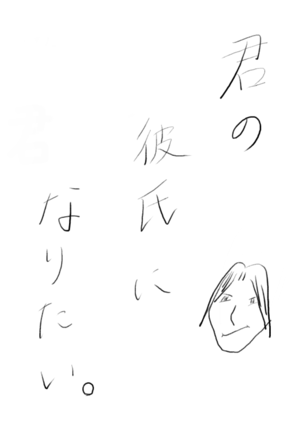 君の
彼氏に
なりたい。